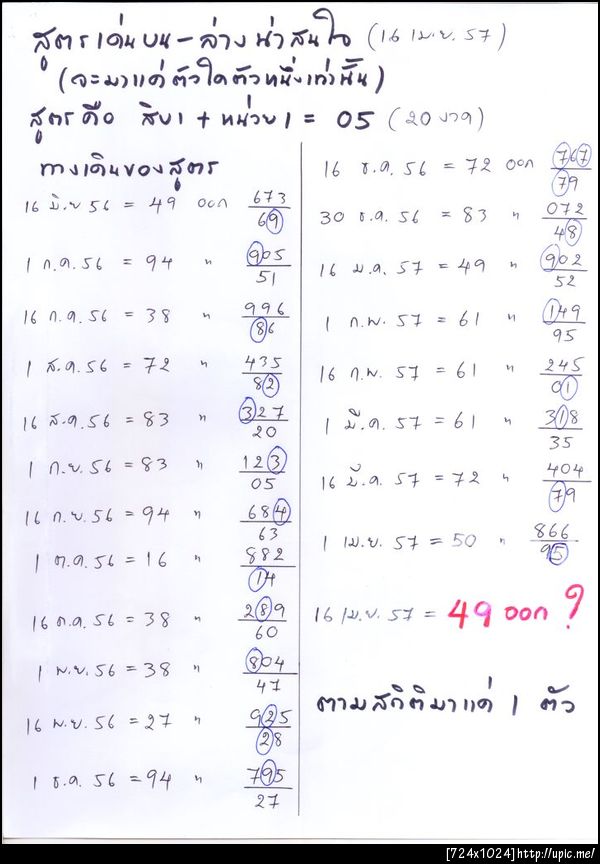 สูตรเด่นบน-ล่างน่าสนใจ (16 เม.ย. 57)
(จะมาแค่ตัวใดตัวหนึ่งเท่านั้น)
สูตรคือ สิบ1 + หน่วย1 = 05 (20 งวด)
ทางเดินของสูตร
16 มิ.ย 56 = 49 ออก 673
69
1 ก.ค. 56 = 94 " 905
51
16 ก.ค. 56 = 38 " 996
86
1 ส.ค. 56 = 72 " 435
82
16 ส.ค. 56 = 83 " 327
20
1 ก.ย. 56 = 83 " 123
05
16 ก.ย. 56 = 94 " 684
63
1 ต.ค. 56 = 16 " 882
14
16 ต.ค. 56 = 38 " 289
60
1 พ.ย. 56 = 38 " 804
47
16 พ.ย. 56 = 27 " 925
28
1 ธ.ค. 56 = 94 " 795
27
16 ธ.ค. 56 = 72 ออก 767
79
30 ธ.ค. 56 = 83 " 072
48
16 ม.ค. 57 = 49 " 902
52
1 ก.พ. 57 = 61 " 149
95
16 ก.พ. 57 = 61 " 245
01
1 มี.ค. 57 = 61 " 318
35
16 มี.ค. 57 = 72 " 404
79
1 เม.ย. 57 = 50 " 866
95
16 เม.ย. 57 = 49 ออก ?
ตามสถิติมาแค่ 1 ตัว
[724x1024]http://upic.me/